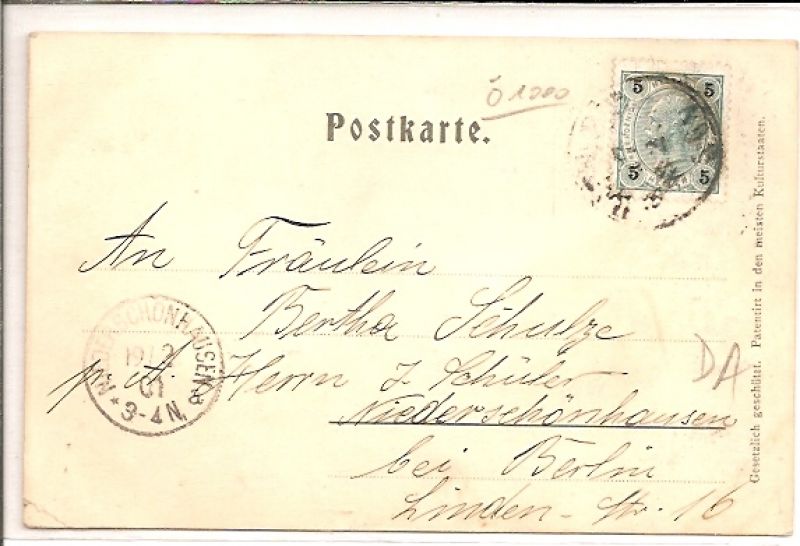 Ö 1000
Postkarte.
5 5
5 5
An Fräulein
Bertha Schulze
p. A. Herrn J. Schüler
Niederschönhausen
bei Berlin
Linden-Str. 16
DA
NIEDERSCHÖNHAUSEN
01
* 3-4 N.
Gesetzlich geschützt. Patentirt in den meisten Kulturstaaten.